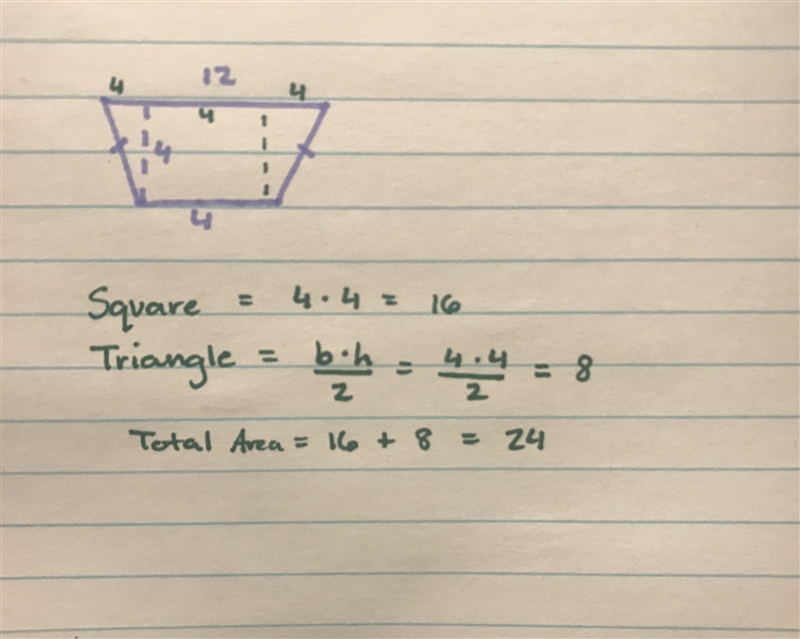 12
4 4
4
4
4
Square = 4 · 4 = 16
Triangle = b·h/2 = 4·4/2 = 8
Total Area = 16 + 8 = 24